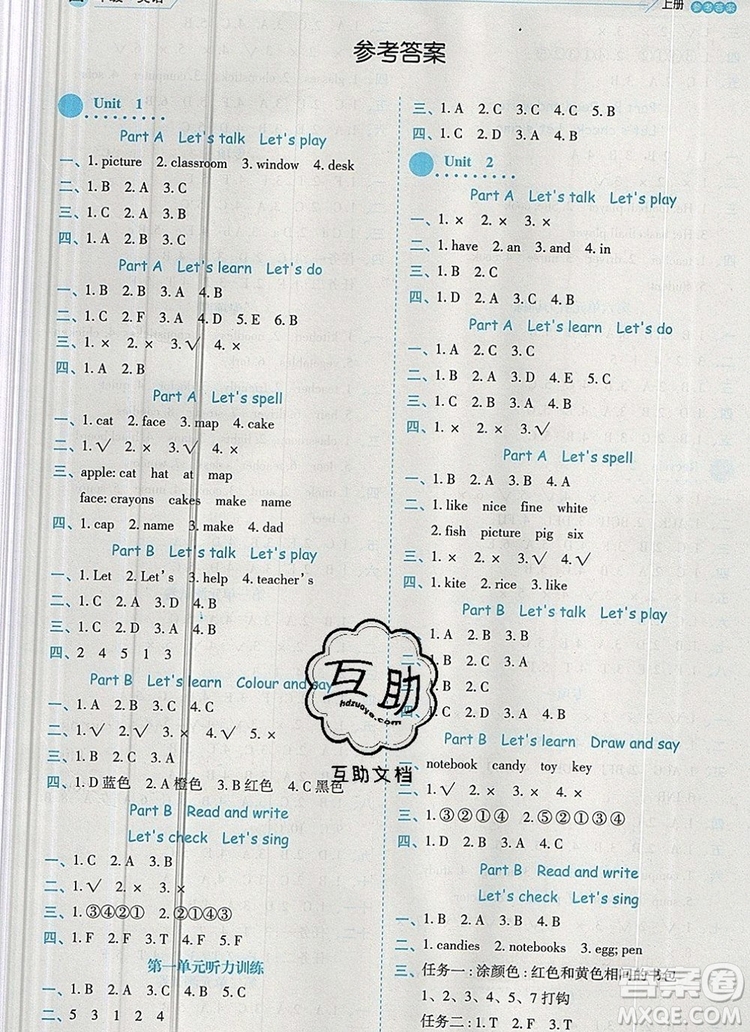 上册 参考答案
参考答案
Unit 1
Part A Let's talk Let's play
一、1. picture 2. classroom 3. window 4. desk
二、1. B 2. A 3. C
三、1. C 2. B 3. A
四、1. A 2. D 3. B 4. C
Part A Let's learn Let's do
一、1. B 2. D 3. A 4. B
二、1. C 2. F 3. A 4. D 5. E 6. B
三、1. × 2. × 3. √ 4. ×
四、1. A 2. B
Part A Let's spell
一、1. cat 2. face 3. map 4. cake
二、1. √ 2. × 3. √ 4. ×
三、apple: cat hat at map
face: crayons cakes make name
四、1. cap 2. name 3. make 4. dad
Part B Let's talk Let's play
一、1. Let 2. Let's 3. help 4. teacher's
二、1. C 2. A 3. D 4. B
三、1. D 2. C 3. A 4. B
四、2 4 5 1 3
Part B Let's learn Colour and say
一、1. A 2. B 3. C 4. C
二、1. √ 2. √ 3. × 4. √
三、1. B 2. C 3. A
四、1. D 蓝色 2. A 橙色 3. B 红色 4. C 黑色
Part B Read and write
Let's check Let's sing
一、1. C 2. A 3. B
二、1. √ 2. × 3. ×
三、1. ③④②① 2. ②①④③
四、1. F 2. F 3. T 4. F 5. F
第一单元听力训练
一、1. C 2. A 3. B 4. B
二、5 3 1 2 4
三、1. A 2. C 3. C 4. C 5. B
四、1. C 2. D 3. A 4. B
Unit 2
Part A Let's talk Let's play
一、1. × 2. × 3. ×
二、1. have 2. an 3. and 4. in
三、1. C 2. A 3. B
四、1. D 2. A 3. C 4. B
Part A Let's learn Let's do
一、1. A 2. C 3. C
二、1. B 2. A 3. D 4. E 5. C
三、1. C 2. B 3. A
四、1. × 2. √ 3. √ 4. ×
Part A Let's spell
一、1. B 2. A
二、1. like nice fine white
2. fish picture pig six
三、1. × 2. × 3. √ 4. √
四、1. kite 2. rice 3. like
Part B Let's talk Let's play
一、1. A 2. B 3. B 4. B
二、1. C 2. A 3. B
三、1. × 2. × 3. √ 4. √
四、1. C 2. D 3. A 4. B
Part B Let's learn Draw and say
一、notebook candy toy key
二、1. B 2. A 3. B 4. B
三、1. ③②①④ 2. ⑤②①③④
四、1. C 2. A 3. B
Part B Read and write
Let's check Let's sing
一、1. C 2. A 3. B 4. B
二、1. candies 2. notebooks 3. egg; pen
三、任务一：涂颜色：红色和黄色相间的书包
1、2、3、5 打钩
任务二：1. F 2. T 3. T 4. T
互助
hdzuoye.com
互助文档
答案圈
MXQE.COM